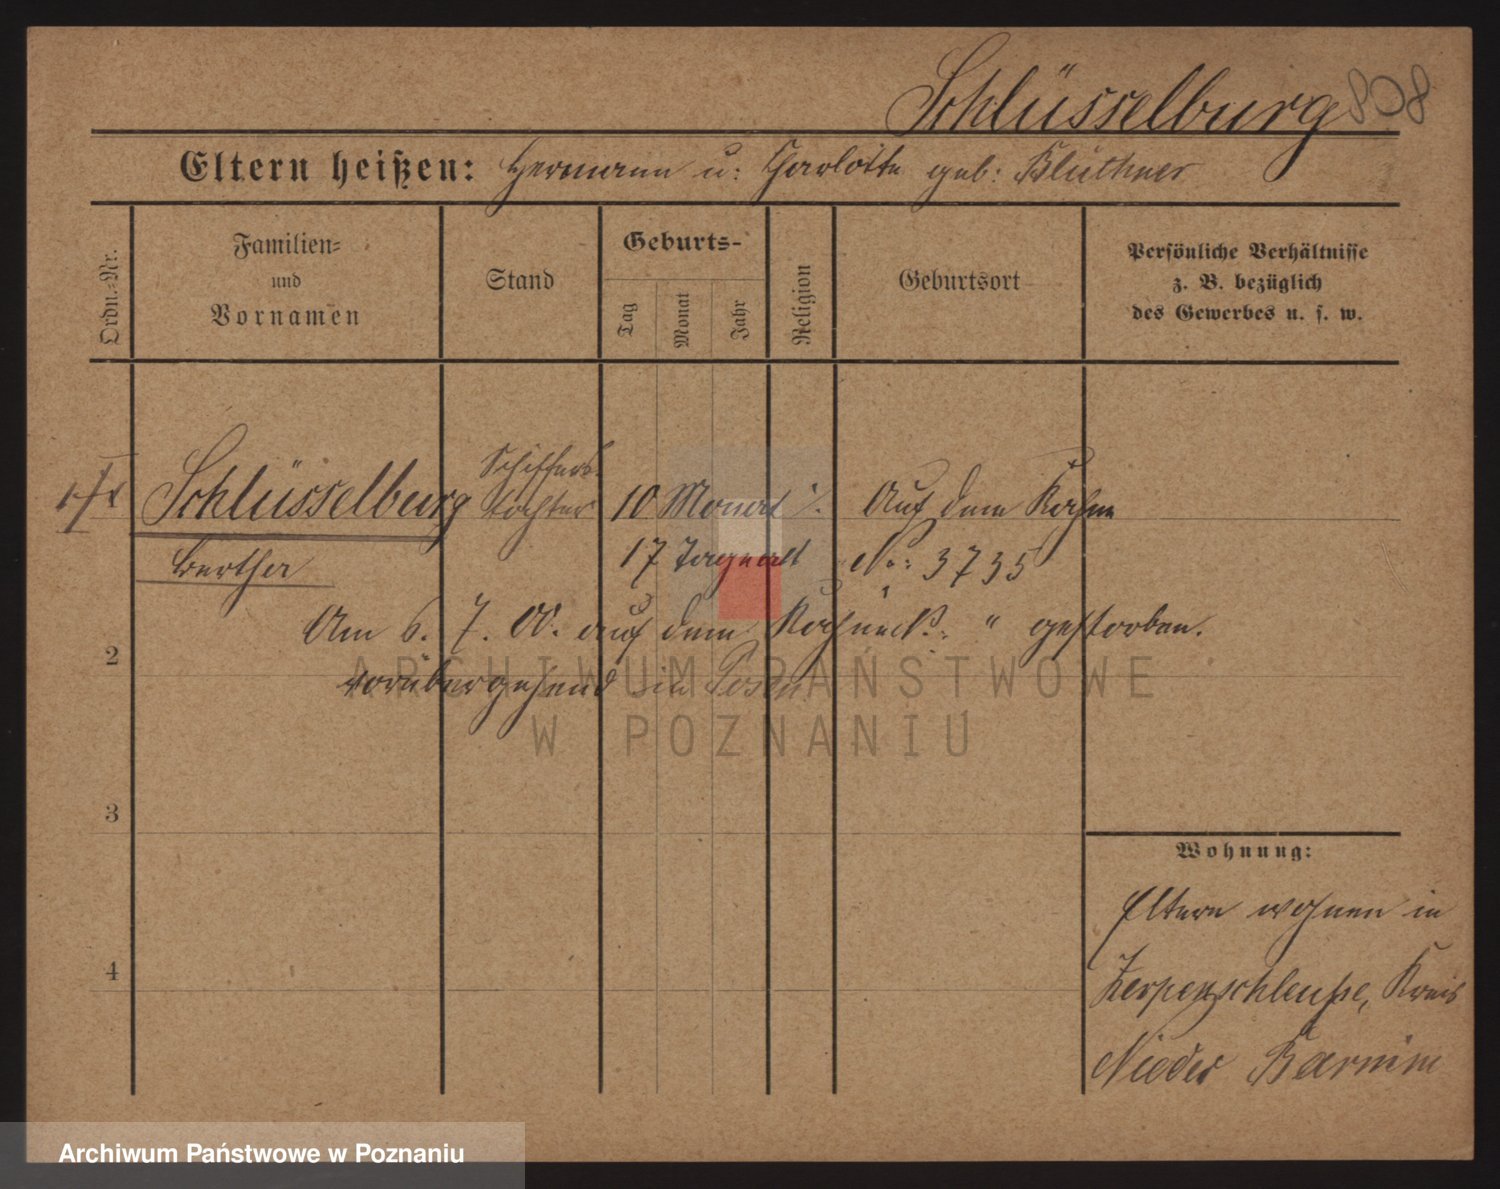 Schlüsselburg 808
Eltern heißen: Hermann u: Charlotte geb: Blüthner
Ordn.-Nr.
Familien-
und
Vornamen
Stand
Geburts-
Tag
Monat
Jahr
Religion
Geburtsort
Persönliche Verhältnisse
z. B. bezüglich
des Gewerbes u. s. w.
Schlüsselburg
Schiffers-
tochter
10 Monat
Auf dem Kahne
Bertha
17 Tage alt
No: 3735
Am 6. 7. 00. auf dem " gestorben.
2
vorübergehend in Posen
ARCHIWUM PAŃSTWOWE
W POZNANIU
3
4
Wohnung:
Eltern wohnen in
Zerpenschleuße, Kreis
Nieder Barnim
Archiwum Państwowe w Poznaniu